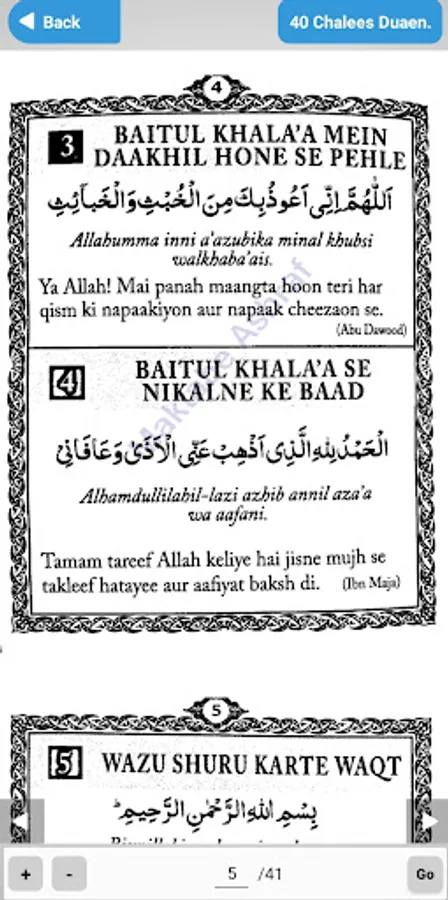 Back
40 Chalees Duaen.
4
3
BAITUL KHALA'A MEIN
DAAKHIL HONE SE PEHLE
اَللّٰهُمَّ اِنِّى اَعُوذُبِكَ مِنَ الْخُبُثِ وَالْخَبَآئِثِ
Allahumma inni a'azubika minal khubsi
walkhaba'ais.
Ya Allah! Mai panah maangta hoon teri har
qism ki napaakiyon aur napaak cheezaon se.
(Abu Dawood)
4
BAITUL KHALA'A SE
NIKALNE KE BAAD
الْحَمْدُ لِلهِ الَّذِى اَذْهِبَ عَنِّى الْاَذٰى وَعَافَانِىْ
Alhamdullilahil-lazi azhib annil aza'a
wa aafani.
Tamam tareef Allah keliye hai jisne mujh se
takleef hatayee aur aafiyat baksh di.
(Ibn Maja)
Maktab e Ashraf
5
5
WAZU SHURU KARTE WAQT
بِسْمِ اللهِ الرَّحْمٰنِ الرَّحِيْمِ
+
-
5
/41
Go